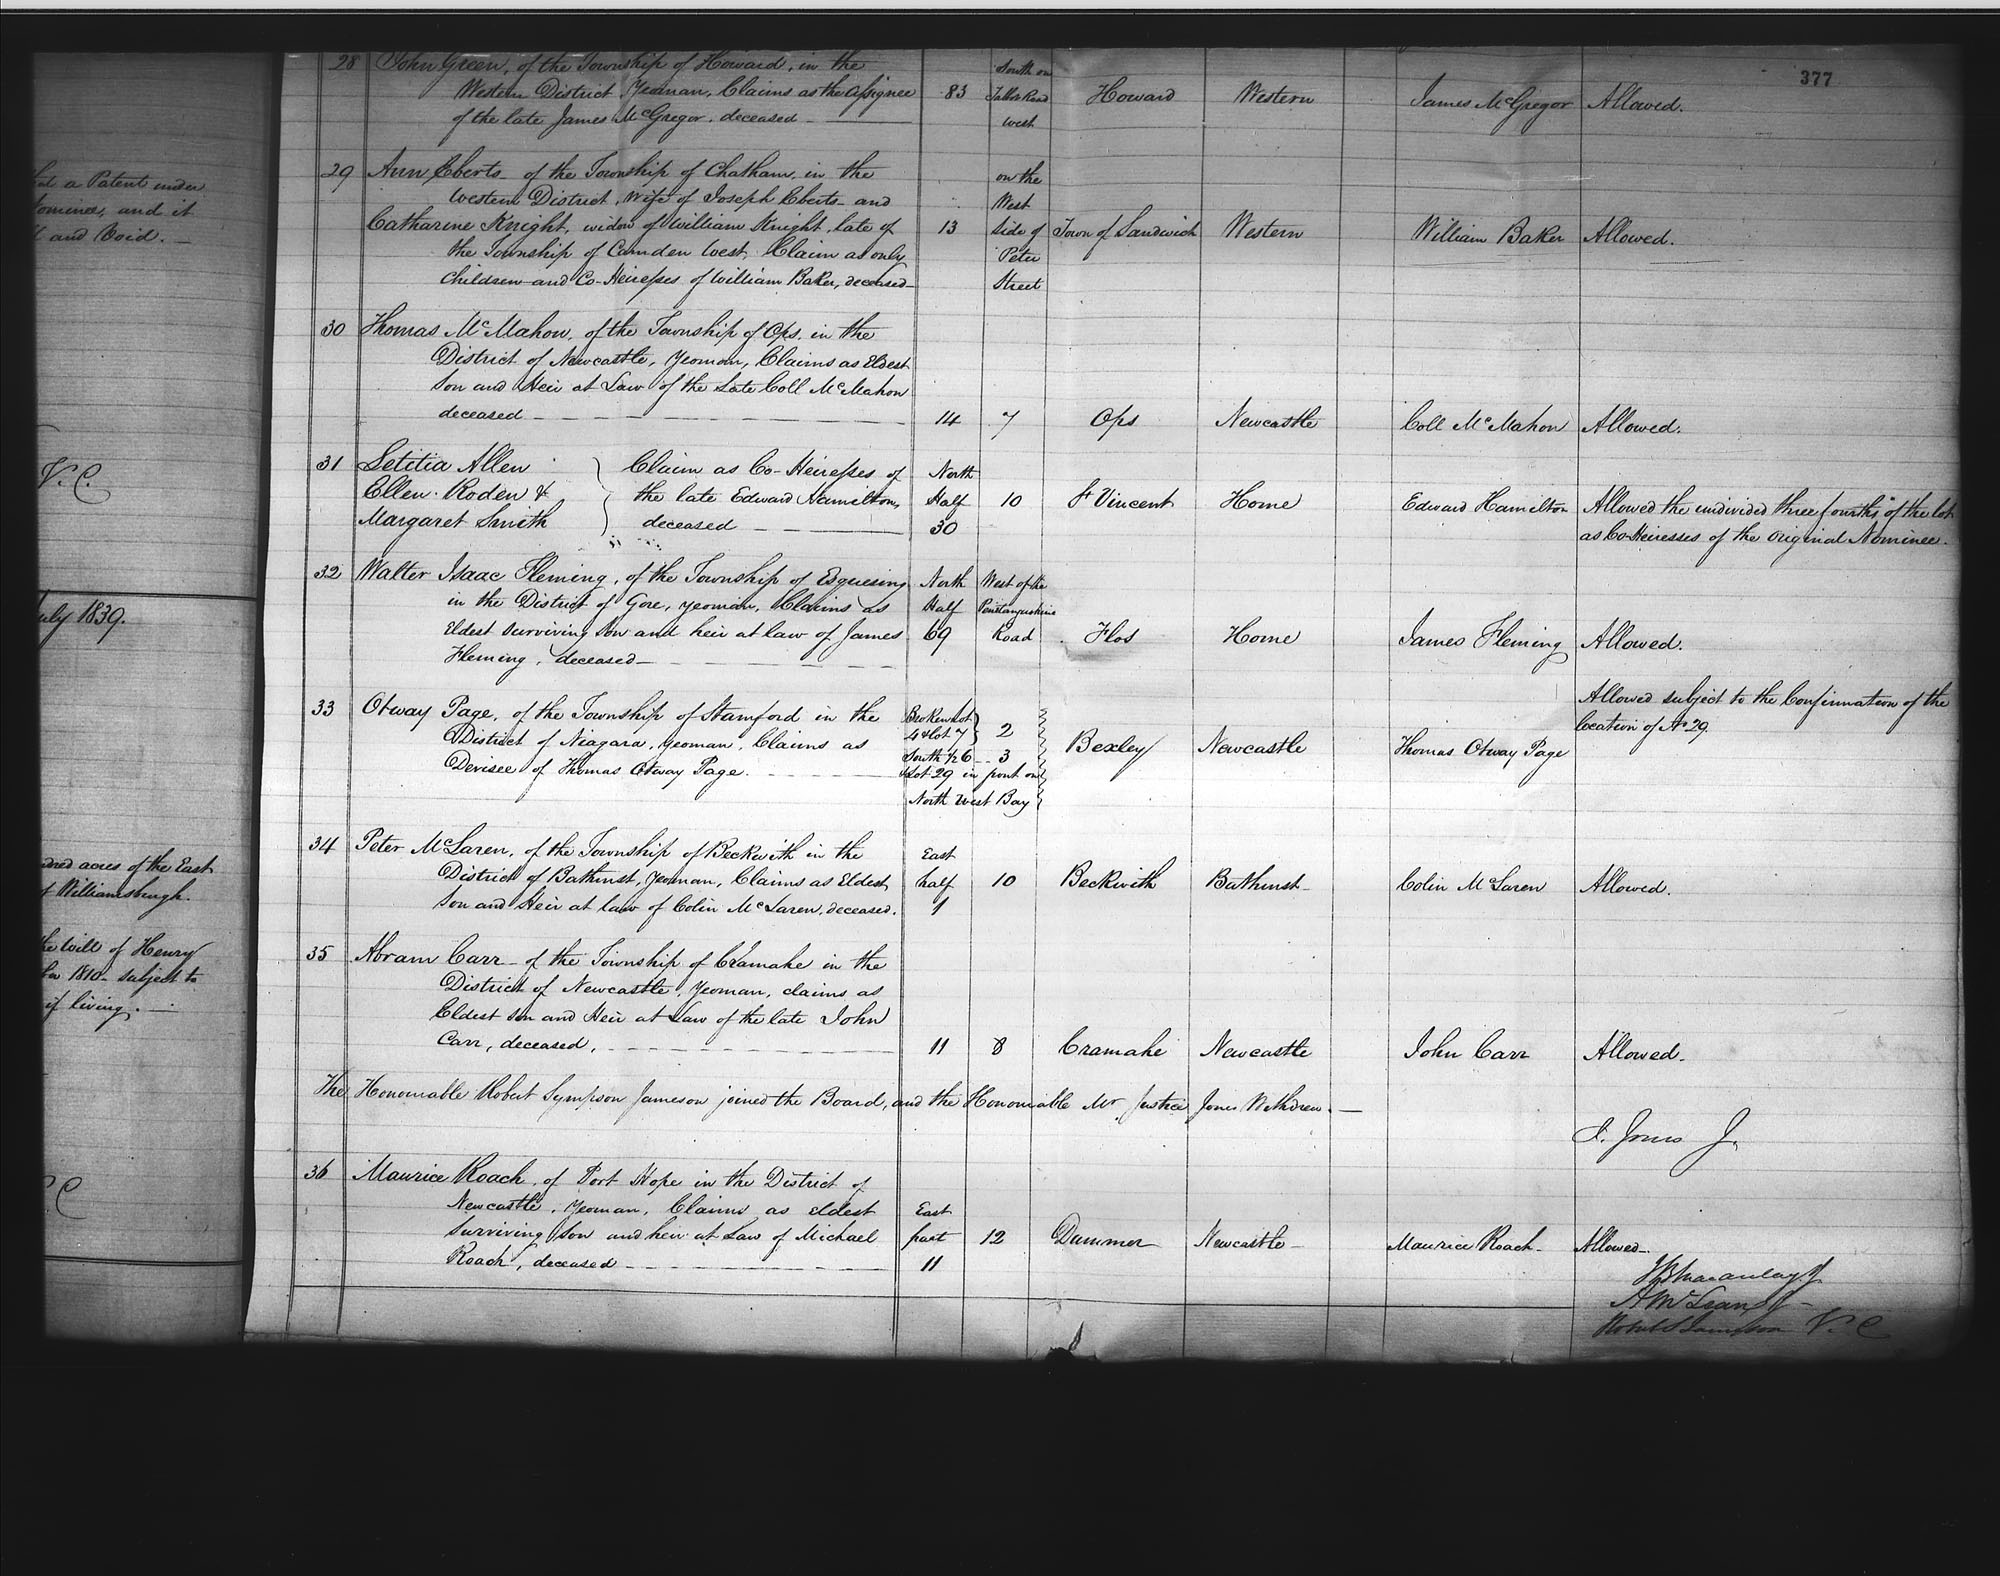 377
hat a Patent under
Nominee, and it
and Void. —
V. C.
July 1839.
dred acres of the East
Williamsburgh.
the will of Henry
1810 - subject to
if living. —
C
28 John Green, of the Township of Howard, in the
Western District, Yeoman, Claims as the assignee
of the late James McGregor, deceased —
83
South on
Talbot Road
West
Howard Western James McGregor Allowed.
29 Ann Eberts of the Township of Chatham, in the
Western District, Wife of Joseph Eberts and
Catharine Knight, widow of William Knight, late of
the Township of Camden West, Claim as only
Children and Co-Heiresses of William Baker, deceased
13
on the
West
side of
Peter
Street
Town of Sandwich Western William Baker Allowed.
30 Thomas McMahon, of the Township of Ops, in the
District of Newcastle, Yeoman, Claims as Eldest
Son and Heir at Law of the Late Coll McMahon
deceased —
14 7 Ops Newcastle Coll McMahon Allowed.
31 Letitia Allen
Ellen Roden &
Margaret Smith
Claim as Co-Heiresses of
the late Edward Hamilton,
deceased —
North
Half
30
10 St Vincent Home Edward Hamilton
Allowed the undivided three fourths of the lot
as Co-Heiresses of the Original Nominee.
32 Walter Isaac Fleming, of the Township of Esquesing
in the District of Gore, yeoman, Claims as
Eldest surviving Son and heir at law of James
Fleming, deceased —
North
Half
69
West of the
Penetanguishine
Road
Flos Home James Fleming Allowed.
33 Otway Page, of the Township of Stamford in the
District of Niagara, yeoman, Claims as
Devisee of Thomas Otway Page.
Broken Lot
4 & lot 7 } 2
South ½ 6 -- 3
& Lot 29 in front on
North West Bay
Bexley Newcastle Thomas Otway Page
Allowed subject to the Confirmation of the
location of No 29.
34 Peter McLaren, of the Township of Beckwith in the
District of Bathurst, Yeoman, Claims as Eldest
Son and Heir at law of Colin McLaren, deceased.
East
half
1
10 Beckwith Bathurst Colin McLaren Allowed.
35 Abram Carr of the Township of Cramahe in the
District of Newcastle, Yeoman, claims as
Eldest Son and Heir at Law of the late John
Carr, deceased,
11 8 Cramahe Newcastle John Carr Allowed.
The Honourable Robert Sympson Jameson joined the Board, and the Honourable Mr Justice Jones Withdrew. —
J. Jones J.
36 Maurice Roach, of Port Hope in the District of
Newcastle, Yeoman, Claims as eldest
surviving Son and heir at Law of Michael
Roach, deceased —
East
part
11
12 Dummer Newcastle Maurice Roach Allowed
JB Macaulay J
A McLean J
Robert S Jameson V. C